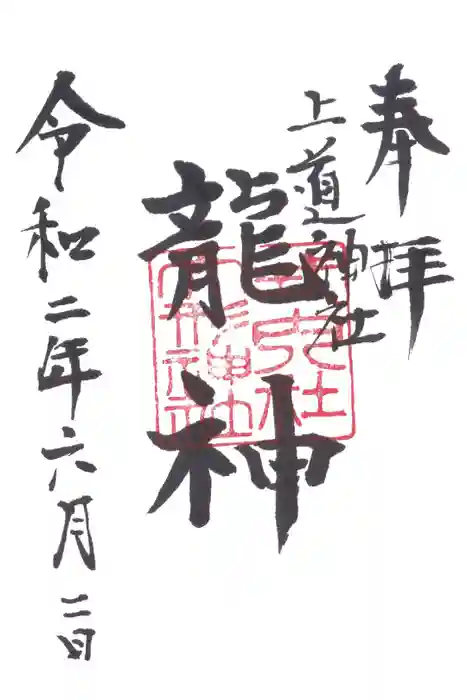 奉拝
上道神社
龍神
令和二年六月二日